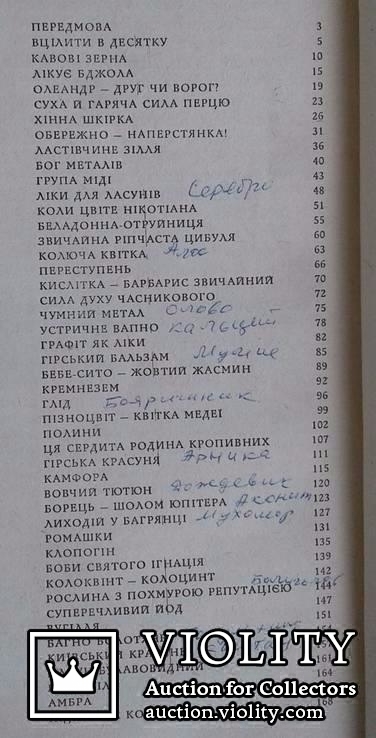 ПЕРЕДМОВА 3
ВЦІЛИТИ В ДЕСЯТКУ 5
КАВОВІ ЗЕРНА 10
ЛІКУЄ БДЖОЛА 15
ОЛЕАНДР — ДРУГ ЧИ ВОРОГ? 19
СУХА Й ГАРЯЧА СИЛА ПЕРЦЮ 23
ХІННА ШКІРКА 26
ОБЕРЕЖНО — НАПЕРСТЯНКА! 31
ЛАСТІВЧИНЕ ЗІЛЛЯ 36
БОГ МЕТАЛІВ 40
ГРУПА МІДІ 43
ЛІКИ ДЛЯ ЛАСУНІВ Серебро 48
КОЛИ ЦВІТЕ НІКОТІАНА 51
БЕЛАДОННА-ОТРУЙНИЦЯ 55
ЗВИЧАЙНА РІПЧАСТА ЦИБУЛЯ 60
КОЛЮЧА КВІТКА Алоэ 63
ПЕРЕСТУПЕНЬ 66
КИСЛІТКА — БАРБАРИС ЗВИЧАЙНИЙ 70
СИЛА ДУХУ ЧАСНИКОВОГО 72
ЧУМНИЙ МЕТАЛ Олово 75
УСТРИЧНЕ ВАПНО Кальций 78
ГРАФІТ ЯК ЛІКИ 82
ГІРСЬКИЙ БАЛЬЗАМ Мумие 85
БЕБЕ-СИТО — ЖОВТИЙ ЖАСМИН 89
КРЕМНЕЗЕМ 92
ГЛІД Боярышник 96
ПІЗНОЦВІТ — КВІТКА МЕДЕЇ 99
ПОЛИНИ 102
ЦЯ СЕРДИТА РОДИНА КРОПИВНИХ 107
ГІРСЬКА КРАСУНЯ Арника 111
КАМФОРА 115
ВОВЧИЙ ТЮТЮН Дождевик 120
БОРЕЦЬ — ШОЛОМ ЮПІТЕРА Аконит 123
ЛИХОДІЙ У БАГРЯНЦІ Мухомор 127
РОМАШКИ 131
КЛОПОГІН 135
БОБИ СВЯТОГО ІГНАЦІЯ 139
КОЛОКВІНТ — КОЛОЦИНТ 142
РОСЛИНА З ПОХМУРОЮ РЕПУТАЦІЄЮ Болиголов 144
СУПЕРЕЧЛИВИЙ ЙОД 147
ВУГІЛЛЯ 151
БАГНО
161
164
АМБРА 168
VIOLITY
Auction for Collectors
auction.violity.com